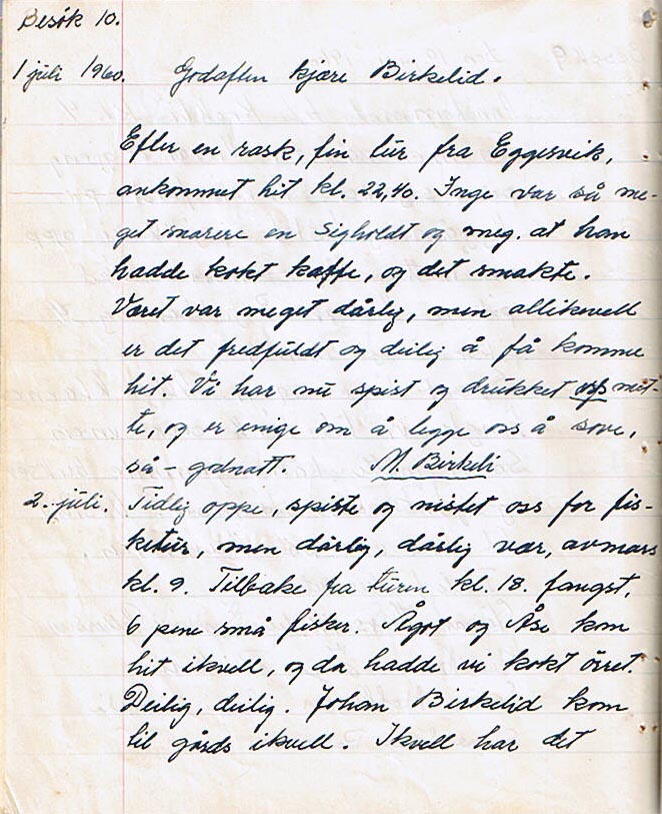 Besök 10.
1 juli 1960. Godaften kjære Birkelid.
Efter en rask, fin tur fra Eggesvik,
ankommet hit kl. 22,40. Inge var så me-
get snarere en Sigholdt og meg. at han
hadde kokt kaffe, og det smakte.
Været var meget dårlig, men allikevell
er det fredfuldt og deilig å få komme
hit. Vi har nu spist og drukket oss met-
te, og er enige om å legge oss å sove,
så - godnatt. M. Birkeli
2. juli. Tidlig oppe, spiste og nistet oss for fis-
ketur, men dårlig, dårlig vær, avmars
kl. 9. Tilbake fra turen kl. 18. fangst,
6 pene små fisker. Ågot og Åse kom
hit ikvell, og da hadde vi kokt örret.
Deilig, deilig. Johan Birkelid kom
til gårds ikvell. Ikvell har det